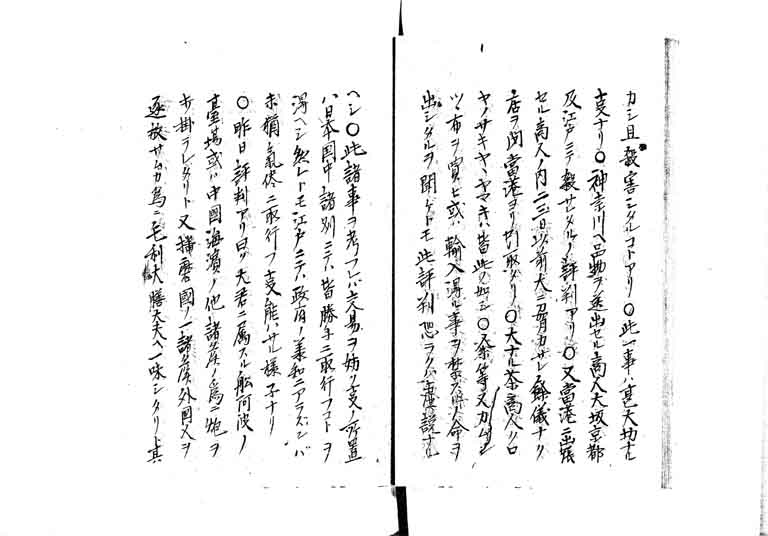 カシ且殺害シタルコトアリ〇此一事ハ甚大切ナル
支ナリ〇神奈川ヘ品物ヲ送出セル商人大坂京都
及江戸ニテ殺サレタルノ評判アリ〇又當港ニ出残
セル商人ノ内二三日以前大ニ刀カサレ余儀ナク
店ヲ閉當港ヨリ引取タリ〇大ナル茶商人クロ
ヤノサキヤヤマキハ皆此又如シ〇糸等又カムシ
ツ布ヲ買ヒ或ハ輸入得ル事ヲ禁ス命ヲ
出シタルヲ聞ケトモ此評判恐ラクハ虚説ナル
ヘシ〇此諸事ヲ考フレバ交易ヲ妨ク支ノ所置
ハ日本国中諸別ニテハ皆勝手ニ取行フコトヲ
得ヘシ然レトモ江戸ニテハ政府ノ美和ニアラズンバ
未猶氣侭ニ取行フ支能ハサル様子ナリ
〇昨日評判アリ曰ク大君ニ属スル舩阿波ノ
臺場或ハ中國海濱ノ他ノ諸侯ノ為ニ炮ヲ
打掛ラレタリト又播磨國ノ一諸侯外国人ヲ
逐放サムカ為ニ毛利大膳大夫ヘ一味シタリト其